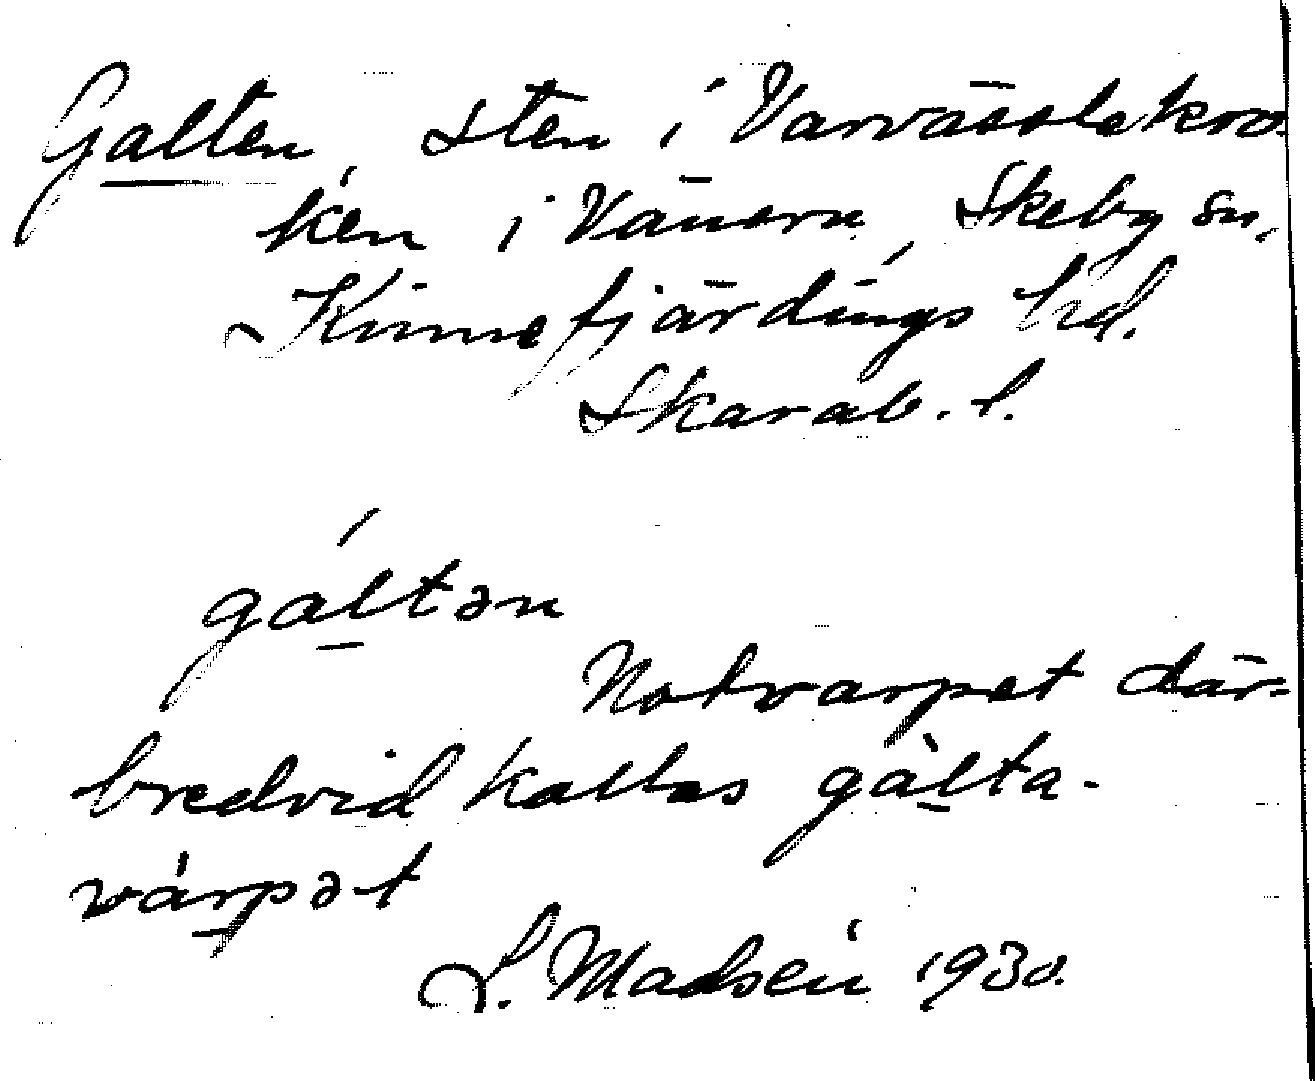 Galten, sten i Varvässlekro-
ken i Vänern, Skeby sn,
Kinnefjärdings hd.
Skarab. l.
gáltən
Notvarpet där-
bredvid kallas gàlta-
várpət
L. Madsén 1930.